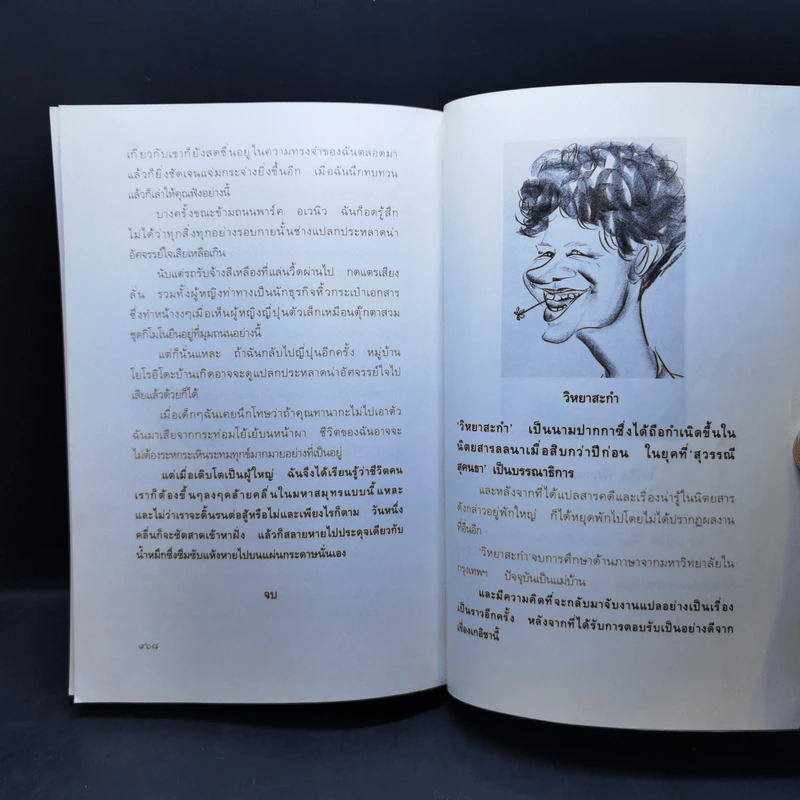 เกี่ยวกับเขาก็ยังสดชื่นอยู่ในความทรงจำของฉันตลอดมา
แล้วก็ยิ่งชัดเจนแจ่มกระจ่างยิ่งขึ้นอีก เมื่อฉันนึกทบทวน
แล้วก็เล่าให้คุณฟังอย่างนี้
บางครั้งขณะข้ามถนนพาร์ค อเวนิว ฉันก็อดรู้สึก
ไม่ได้ว่าทุกสิ่งทุกอย่างรอบกายนั้นช่างแปลกประหลาดน่า
อัศจรรย์ใจเสียเหลือเกิน
นับแต่รถรับจ้างสีเหลืองที่แล่นวี้ดผ่านไป กดแตรเสียง
ลั่น รวมทั้งผู้หญิงท่าทางเป็นนักธุรกิจหิ้วกระเป๋าเอกสาร
ซึ่งทำหน้างงๆเมื่อเห็นผู้หญิงญี่ปุ่นตัวเล็กเหมือนตุ๊กตาสวม
ชุดกิโมโนยืนอยู่ที่มุมถนนอย่างนี้
แต่ก็นั่นแหละ ถ้าฉันกลับไปญี่ปุ่นอีกครั้ง หมู่บ้าน
โยโรอิโดะบ้านเกิดอาจจะดูแปลกประหลาดน่าอัศจรรย์ใจไป
เสียแล้วด้วยก็ได้
เมื่อเด็กๆฉันเคยนึกโทษว่าถ้าคุณทานากะไม่ไปเอาตัว
ฉันมาเสียจากกระท่อมโย้เย้บนหน้าผา ชีวิตของฉันอาจจะ
ไม่ต้องระหกระเหินระทมทุกข์มากมายอย่างที่เป็นอยู่
แต่เมื่อเติบโตเป็นผู้ใหญ่ ฉันจึงได้เรียนรู้ว่าชีวิตคน
เราก็ต้องขึ้นๆลงๆคล้ายคลื่นในมหาสมุทรแบบนี้แหละ
และไม่ว่าเราจะดิ้นรนต่อสู้หรือไม่และเพียงไรก็ตาม วันหนึ่ง
คลื่นก็จะซัดสาดเข้าหาฝั่ง แล้วก็สลายหายไปประดุจเดียวกับ
น้ำหมึกซึ่งซึมซับแห้งหายไปบนแผ่นกระดาษนั่นเอง
จบ
๙๖๘
วิทยาสะกำ
‘วิทยาสะกำ’ เป็นนามปากกาซึ่งได้ถือกำเนิดขึ้นใน
นิตยสารลลนาเมื่อสิบกว่าปีก่อน ในยุคที่ ‘สุวรรณี
สุคนธา’ เป็นบรรณาธิการ
และหลังจากที่ได้แปลสารคดีและเรื่องน่ารู้ในนิตยสาร
ดังกล่าวอยู่พักใหญ่ ก็ได้หยุดพักไปโดยไม่ได้ปรากฏผลงาน
ที่อื่นอีก
‘วิทยาสะกำ’จบการศึกษาด้านภาษาจากมหาวิทยาลัยใน
กรุงเทพฯ ปัจจุบันเป็นแม่บ้าน
และมีความคิดที่จะกลับมาจับงานแปลอย่างเป็นเรื่อง
เป็นราวอีกครั้ง หลังจากที่ได้รับการตอบรับเป็นอย่างดีจาก
เรื่องเกอิชานี้